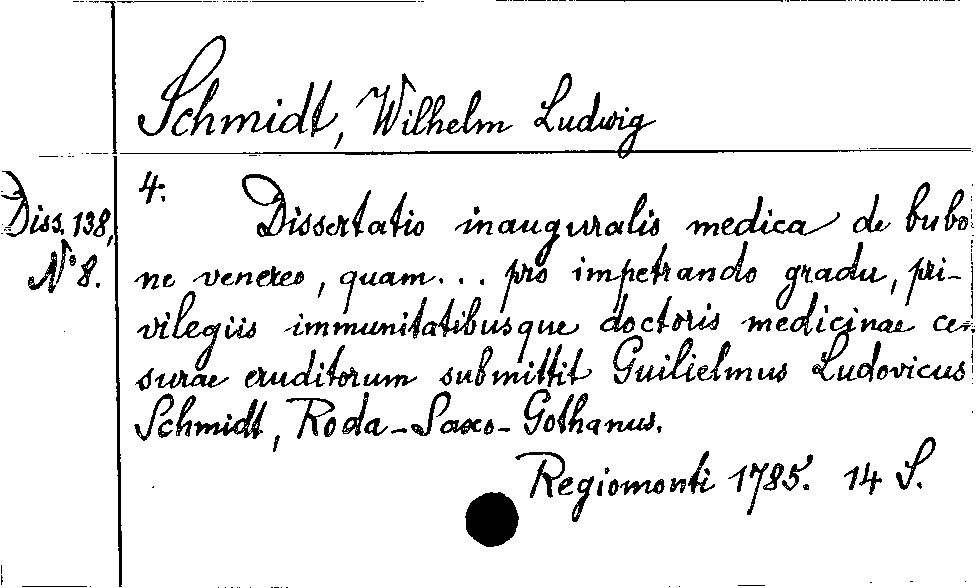 Schmidt, Wilhelm Ludwig
Diss. 138,
N° 8.
4:
Dissertatio inauguralis medica de bubo
ne venereo, quam... pro impetrando gradu, pri-
vilegiis immunitatibusque doctoris medicinae cen
surae eruditorum submittit Guilielmus Ludovicus
Schmidt, Roda-Saxo-Gothanus.
Regiomonti 1785. 14 S.